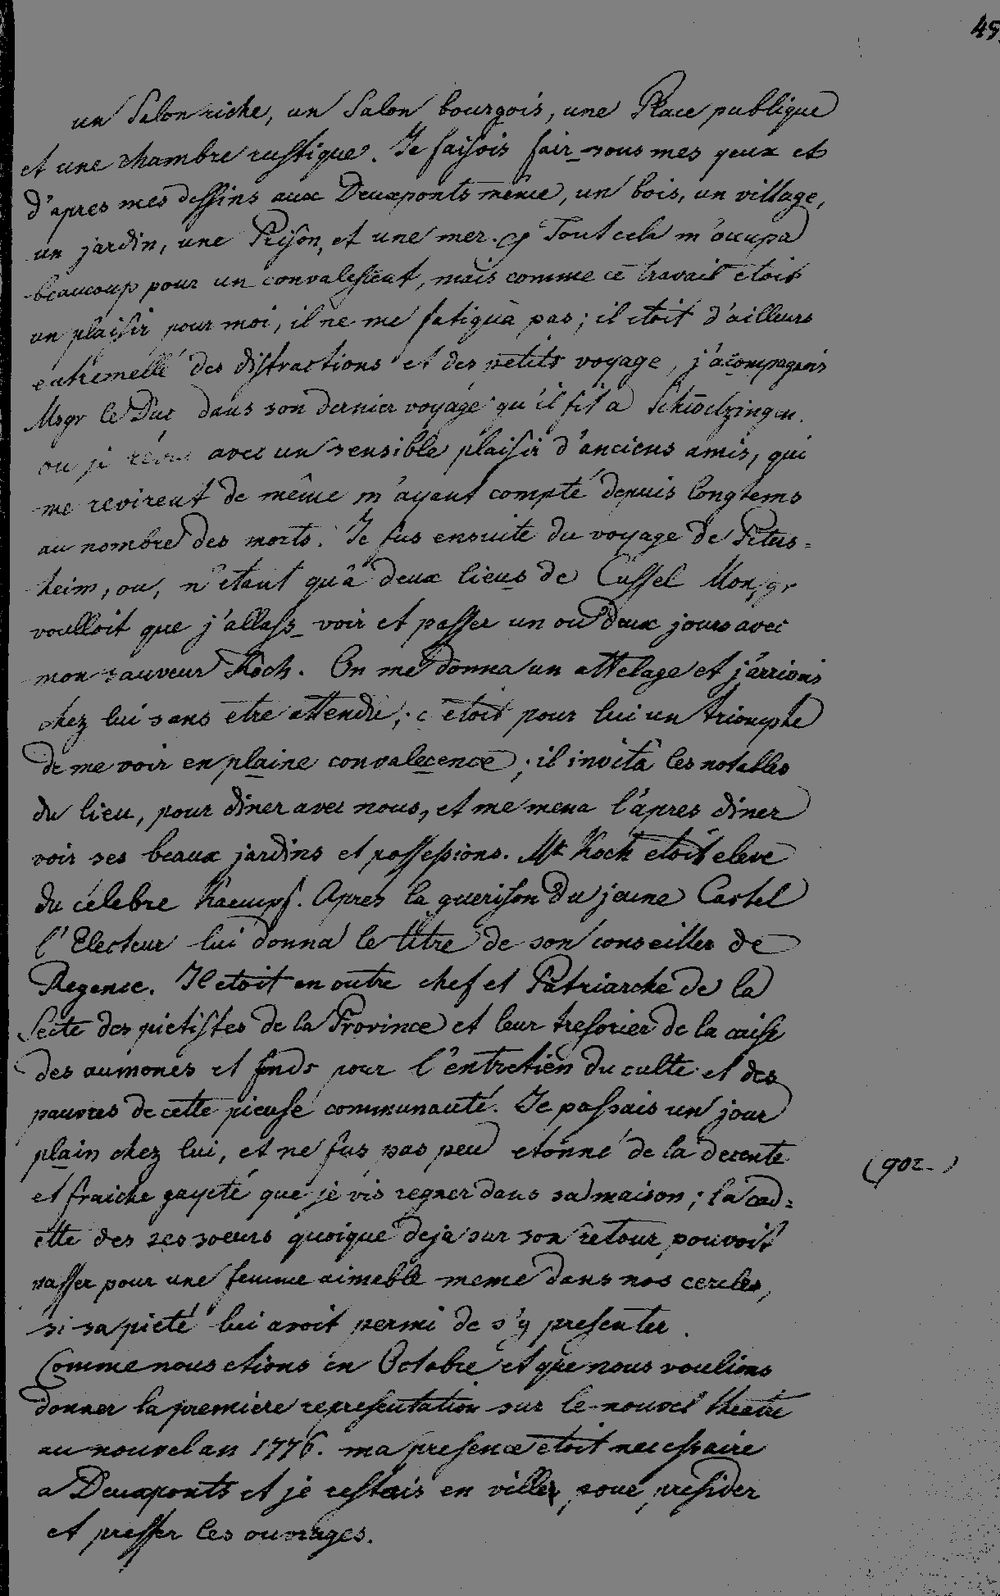 49
un Salon riche, un Salon bourgois, une Place publique
et une chambre rustique. Je faisois fair sous mes yeux et
d'apres mes dessins aux Deuxponts même, un bois, un village,
un jardin, une Prison, et une mer. Tout cela m'occupa
beaucoup pour un convalescent, mais comme ce travail etoit
un plaisir pour moi, il ne me fatigua pas; il etoit d'ailleurs
entremellé des distractions et des petits voyage, j'acompagnois
Msgr le Duc dans son dernier voyage qu'il fit a Schwelzingen.
ou je avec un sensible plaisir d'anciens amis, qui
me revirent de même m'ayant compté depuis longtems
au nombre des morts. Je fus ensuite du voyage de Peters=
heim, ou, n'étant qu'à deux lieus de Cussel Monsgr
voulloit que j'allass voir et passer un ou deux jours avec
mon sauveur Koch. On me donna un attelage et j'arrivois
chez lui sans etre attendu; c'etoit pour lui un triomphe
de me voir en plaine convalecence; il invita les notables
du lieu, pour diner avec nous, et me mena l'apres diner
voir ses beaux jardins et possessions. Mr Koch etoit eleve
du célebre Kaempf. Apres la guerison du jeune Castel
l'Electeur lui donna le titre de son conseiller de
Regence. Il etoit en outre chef et Patriarche de la
Secte des pietistes de la Province et leur tresorier de la caise
des aumones et fonds pour l'entretien du culte et des
pauvres de cette pieuse communauté. Je passais un jour
plain chez lui, et ne fus pas peu etonné de la decente
(902.)
et fraiche gayeté que je vis regner dans sa maison; la cad=
ette des ses soeurs quoique deja sur son retour pouvoit
passer pour une femme aimable meme dans nos cercles,
si sa pieté lui avoit permi de s'y presenter.
Comme nous etions en Octobre et que nous voulions
donner la premiere representation sur le nouvel theatre
au nouvel an 1776. ma presence etoit necessaire
a Deuxponts et je restois en ville, pour presider
et presser les ouvrages.